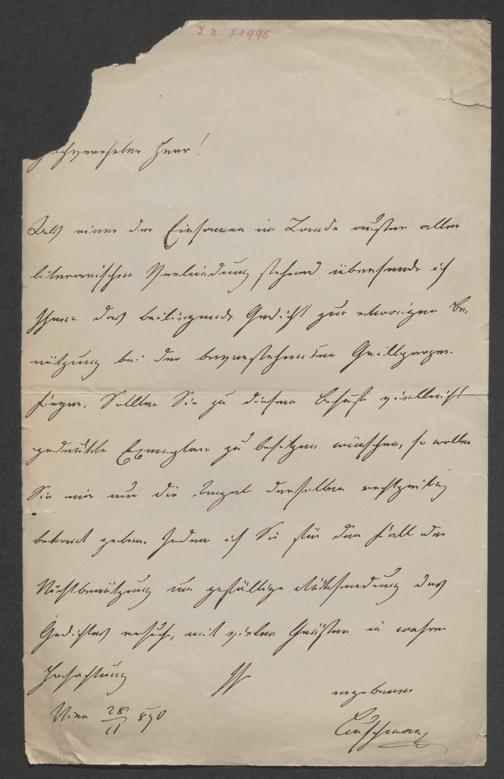 I. N. 71995
Hochverehrter Herr!
Als einer der Einsamen im Lande außer aller
literarischen Verbindung stehend übersende ich
Ihnen das beiliegende Gedicht zur etwaigen Be-
nützung bei der bevorstehenden Grillparzer-
feyer. Sollten Sie zu diesem Behufe vielleicht
gedruckte Exemplare zu besitzen wünschen, so wollen
Sie mir nur die Anzal derselben rechtzeitig
bekannt geben. Indem ich Sie für den Fall der
Nichtbenützung um gefällige Rücksendung des
Gedichtes ersuche, mit vielen Grüßen in wahrer
Hochachtung
Ihr
ergebener
Wien 28/11 890